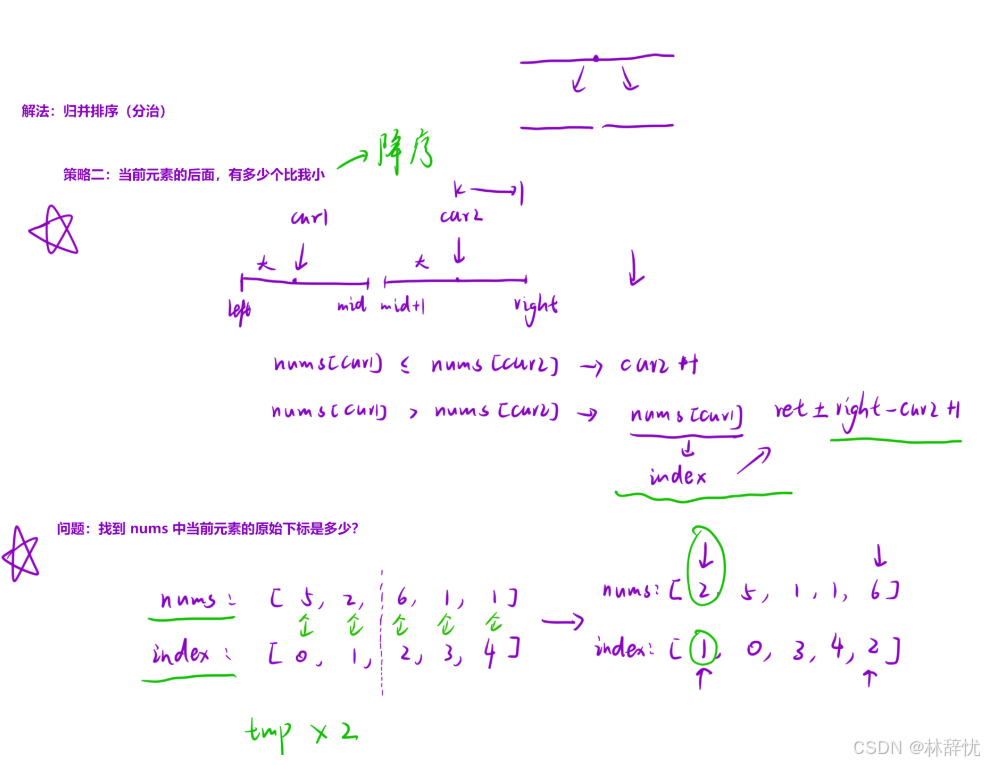 解法：归并排序（分治）
策略二：当前元素的后面，有多少个比我小
降序
k
cur1
cur2
大
大
left
mid
mid+1
right
nums[cur1] ≤ nums[cur2] → cur2++
nums[cur1] > nums[cur2] → nums[cur1]
ret += right-cur2+1
index
问题：找到 nums 中当前元素的原始下标是多少？
nums: [5, 2, 6, 1, 1]
index: [0, 1, 2, 3, 4]
nums: [2, 5, 1, 1, 6]
index: [1, 0, 3, 4, 2]
tmp × 2
CSDN @林辞忧